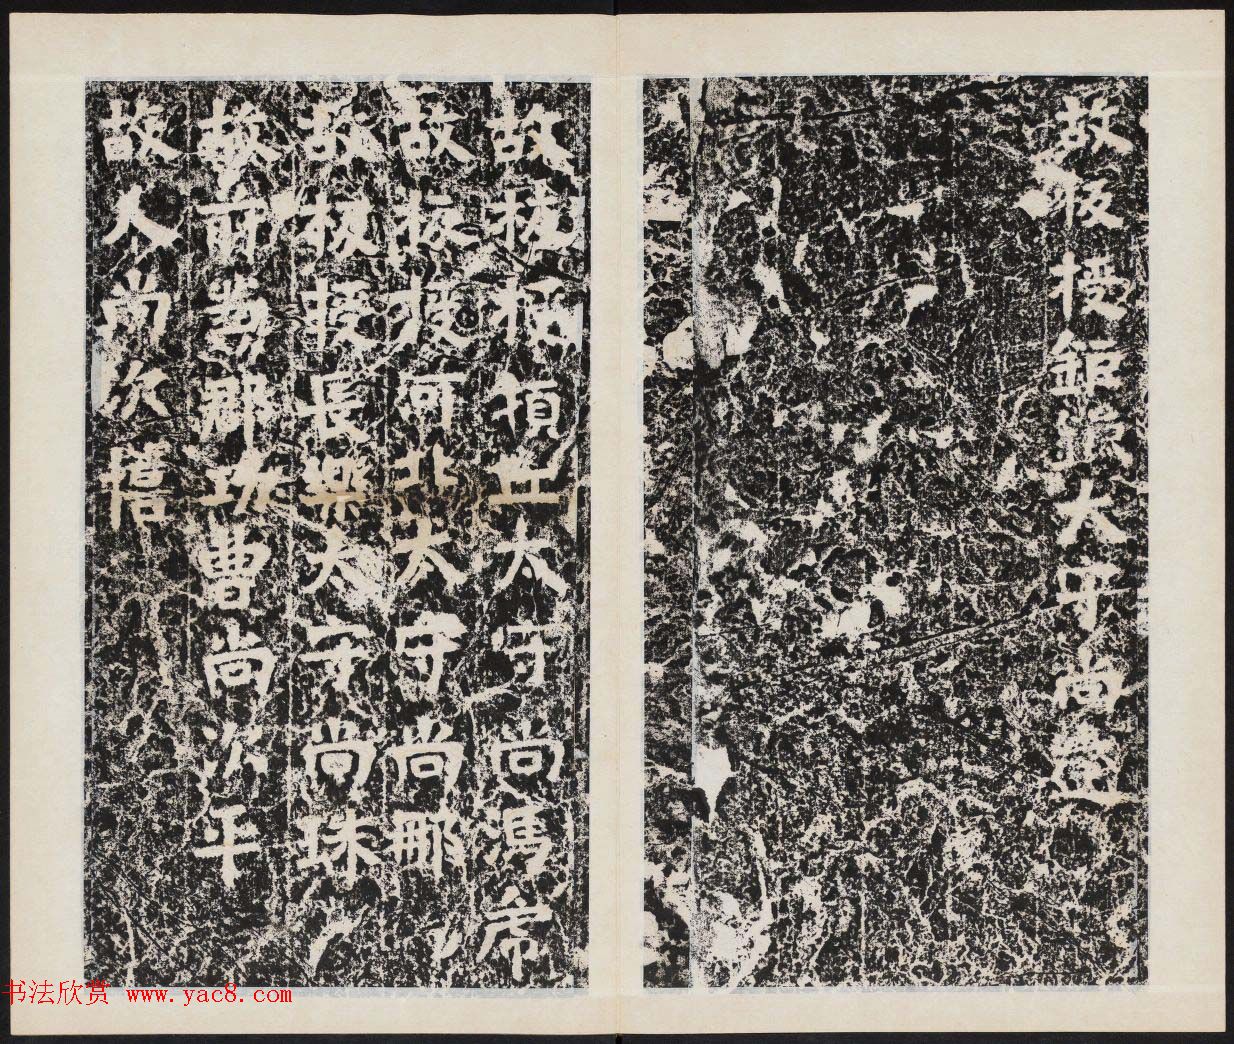 故板授鉅鹿太守尚登
故板授頓丘太守尚馮虎
故板授河北太守尚郍
故板授長樂太守尚珠
故前勃郡功曹尚次平
故人尚次
书法欣赏 www.yac8.com